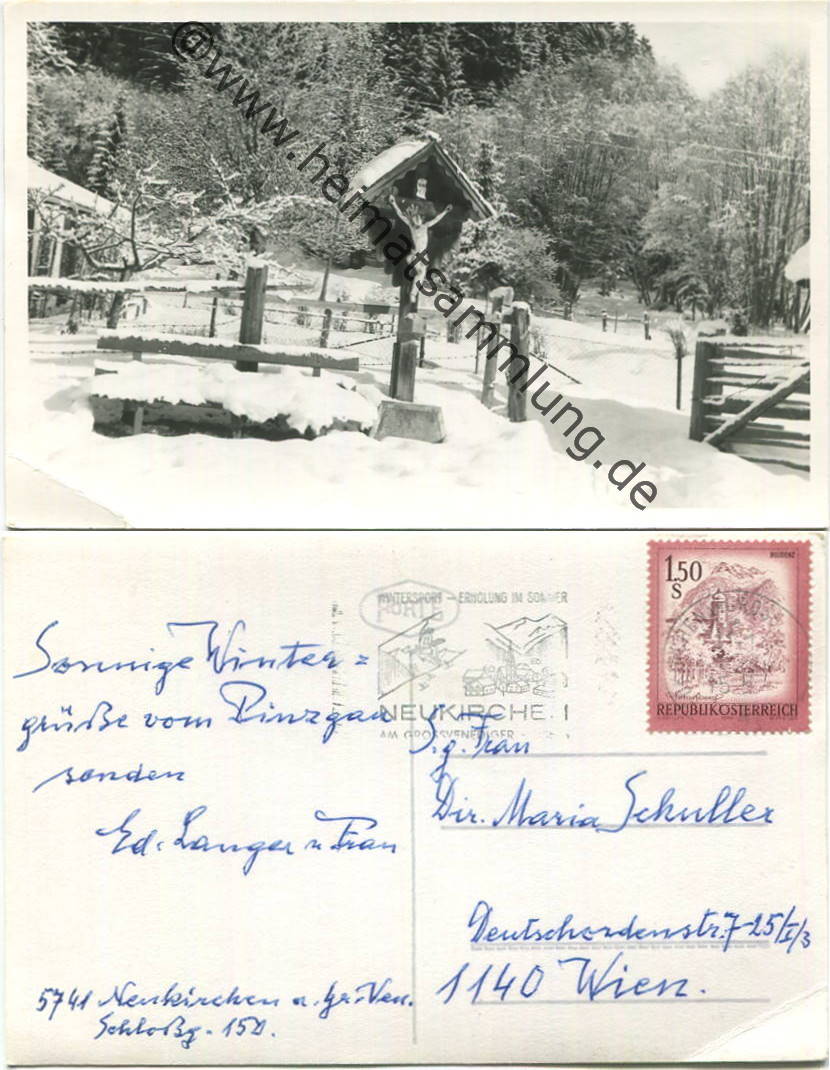 ©www.heimatsammlung.de
WINTERSPORT - ERHOLUNG IM SOMMER
PORTE
NEUKIRCHEN
AM GROSSVENEDIGER
1.50
S
BLUDENZ
REPUBLIK ÖSTERREICH
Sonnige Winter=
grüße vom Pinzgau
senden
Ed. Langer u Frau
5741 Neukirchen a. Gr. Ven.
Schloßg. 150.
S.g. Frau
Dir. Maria Schuller
Deutschordenstr. 7-25/I/3
1140 Wien.